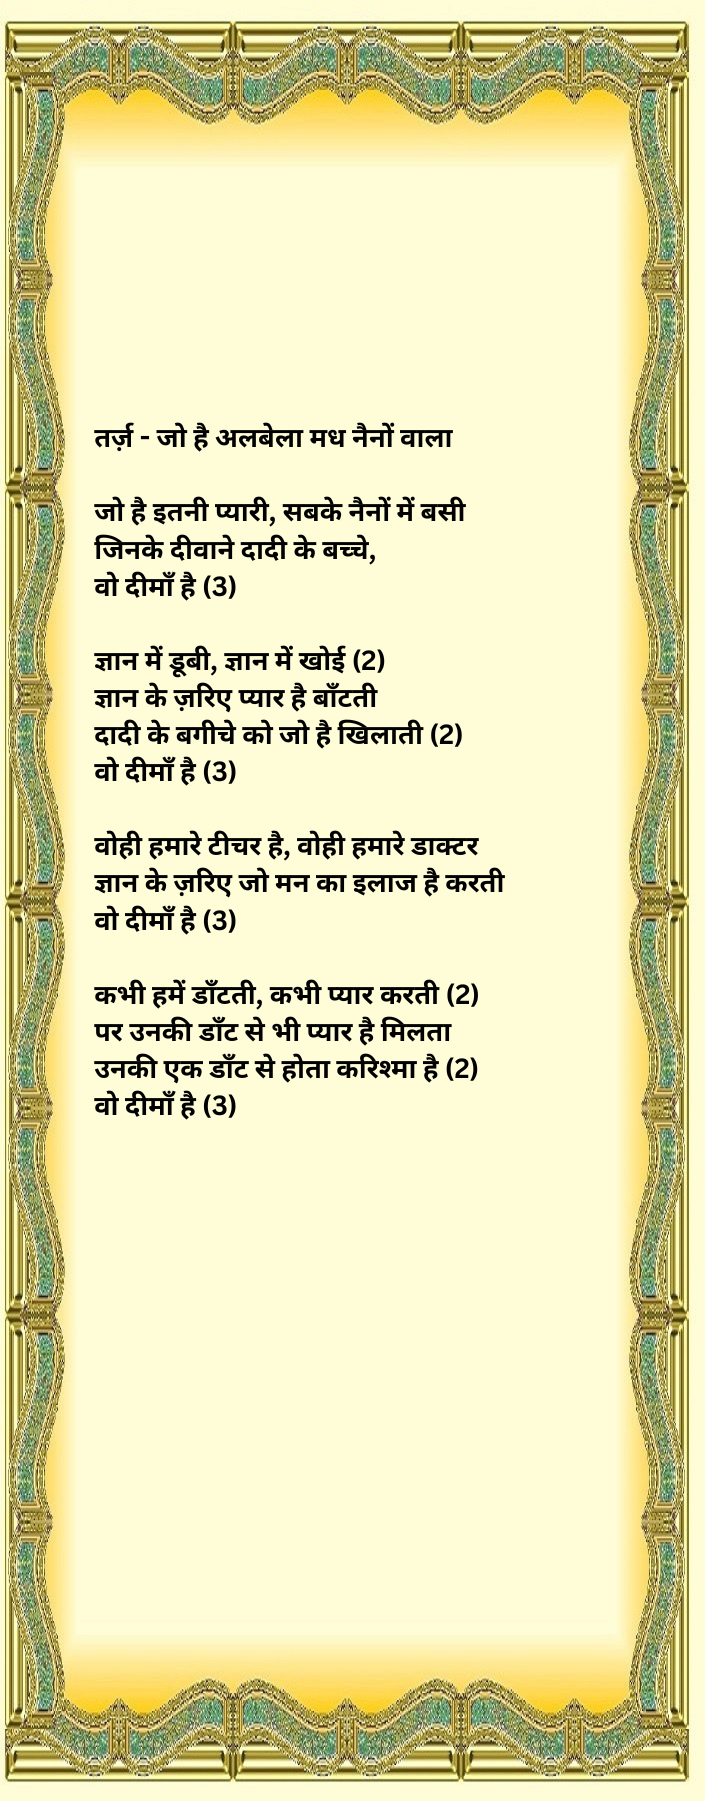 तर्ज़ - जो है अलबेला मध नैनों वाला
जो है इतनी प्यारी, सबके नैनों में बसी
जिनके दीवाने दादी के बच्चे,
वो दीमाँ है (3)
ज्ञान में डूबी, ज्ञान में खोई (2)
ज्ञान के ज़रिए प्यार है बाँटती
दादी के बगीचे को जो है खिलाती (2)
वो दीमाँ है (3)
वोही हमारे टीचर है, वोही हमारे डाक्टर
ज्ञान के ज़रिए जो मन का इलाज है करती
वो दीमाँ है (3)
कभी हमें डाँटती, कभी प्यार करती (2)
पर उनकी डाँट से भी प्यार है मिलता
उनकी एक डाँट से होता करिश्मा है (2)
वो दीमाँ है (3)